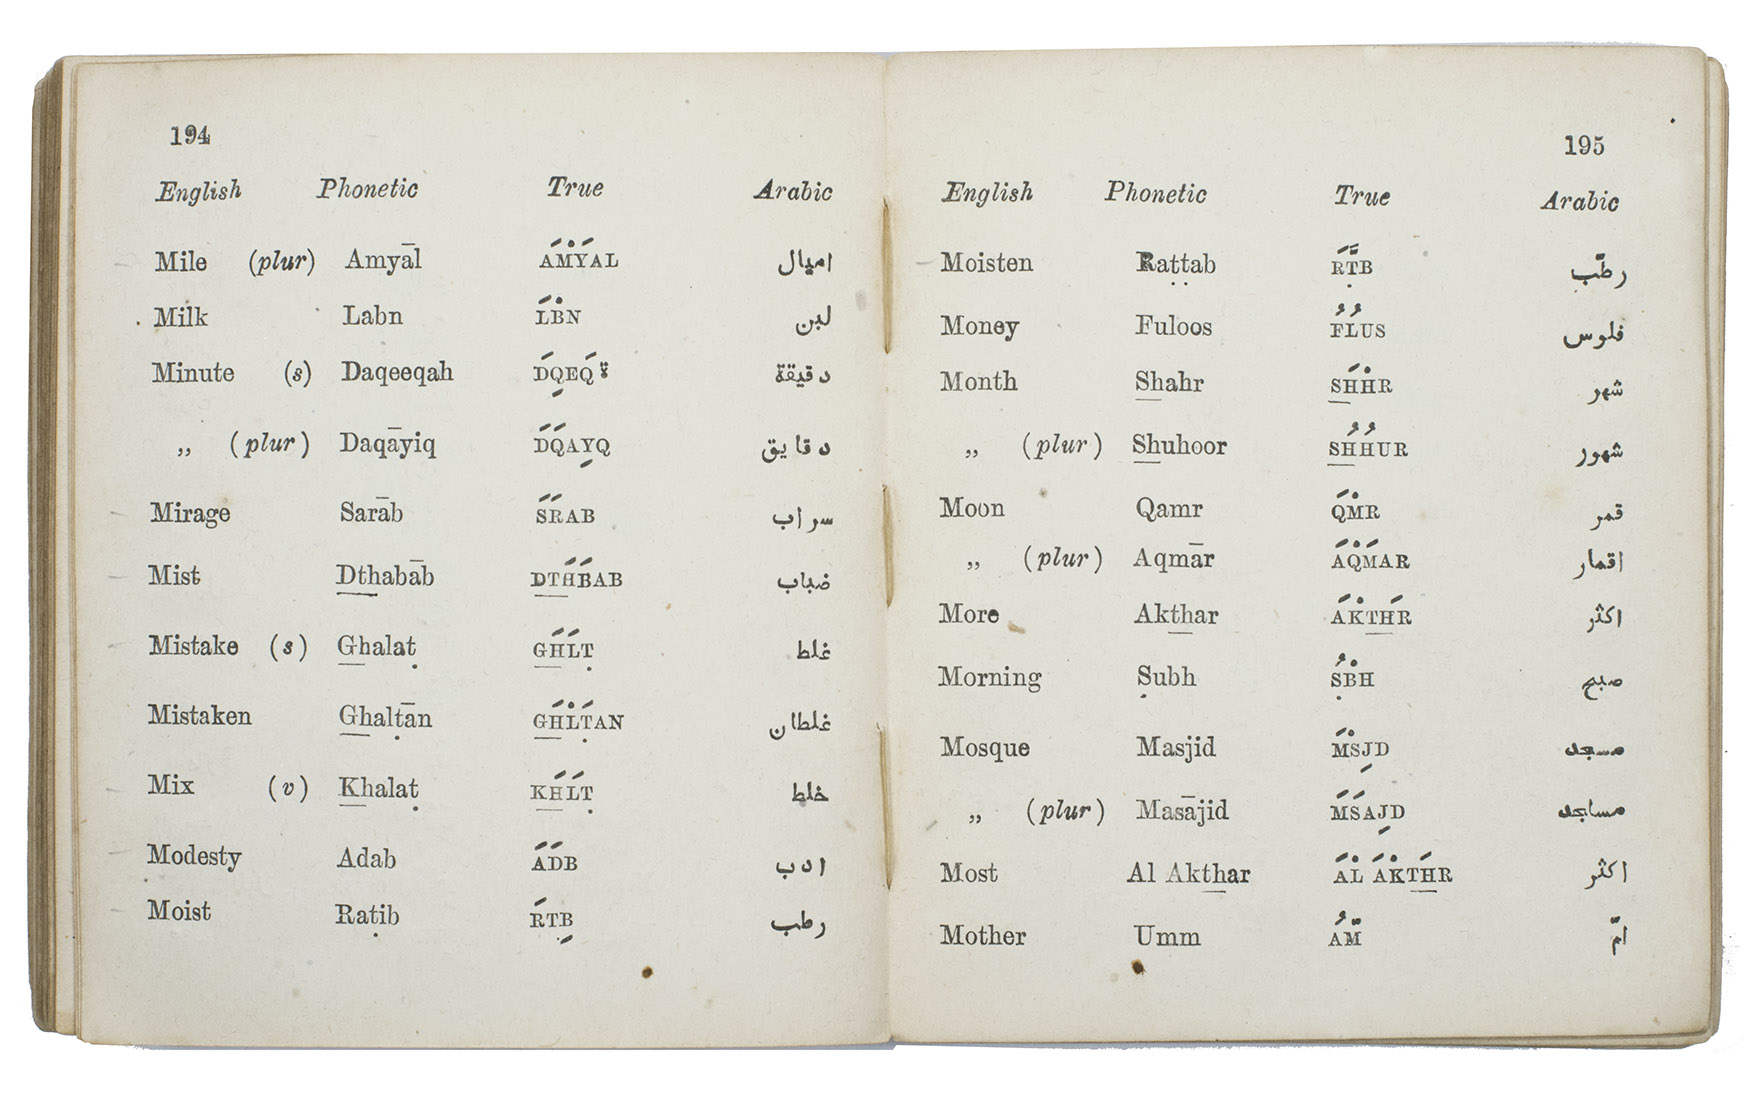 194
English Phonetic True Arabic
Mile (plur) Amyāl AMYAL اميال
Milk Labn LBN لبن
Minute (s) Daqeeqah DQEQة دقيقة
„ (plur) Daqāyiq DQAYQ دقايق
Mirage Sarāb SRAB سراب
Mist Dthabāb DTHBAB ضباب
Mistake (s) Ghalaṭ GHLṬ غلط
Mistaken Ghalṭān GHLṬAN غلطان
Mix (v) Khalaṭ KHLṬ خلط
Modesty Adab ADB ادب
Moist Raṭib RTB رطب
195
English Phonetic True Arabic
Moisten Raṭṭab RṬB رطّب
Money Fuloos FLUS فلوس
Month Shahr SHHR شهر
„ (plur) Shuhoor SHHUR شهور
Moon Qamr QMR قمر
„ (plur) Aqmār AQMAR اقمار
More Akthar AKTHR اكثر
Morning Ṣubh ṢBH صبح
Mosque Masjid MSJD مسجد
„ (plur) Masājid MSAJD مساجد
Most Al Akthar AL AKTHR اكثر
Mother Umm AM امّ